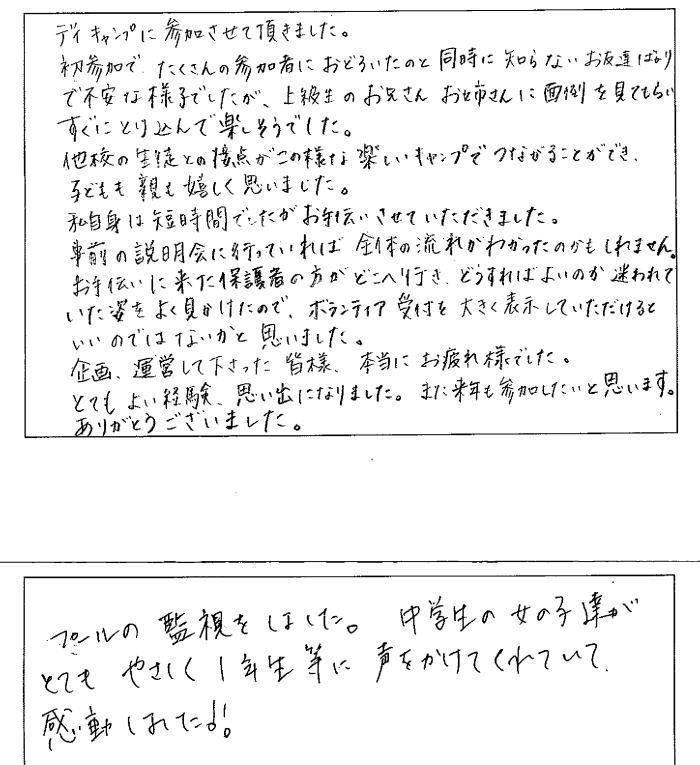 デイキャンプに参加させて頂きました。
初参加で、たくさんの参加者におどろいたのと同時に知らないお友達ばかり
で不安な様子でしたが、上級生のお兄さんお姉さんに面倒を見てもらい
すぐにとけ込んで楽しそうでした。
他校の生徒との接点がこの様な楽しいキャンプでつながることができ、
子どもも親も嬉しく思いました。
私自身は短時間でしたがお手伝いさせていただきました。
事前の説明会に行っていれば全体の流れがわかったのかもしれません。
お手伝いに来た保護者の方がどこへ行き、どうすればよいのか迷われて
いた姿をよく見かけたので、ボランティア受付を大きく表示していただけると
いいのではないかと思いました。
企画、運営して下さった皆様、本当にお疲れ様でした。
とてもよい経験、思い出になりました。また来年も参加したいと思います。
ありがとうございました。
プールの監視をしました。中学生の女の子達が
とてもやさしく1年生等に声をかけてくれていて、
感動しました!